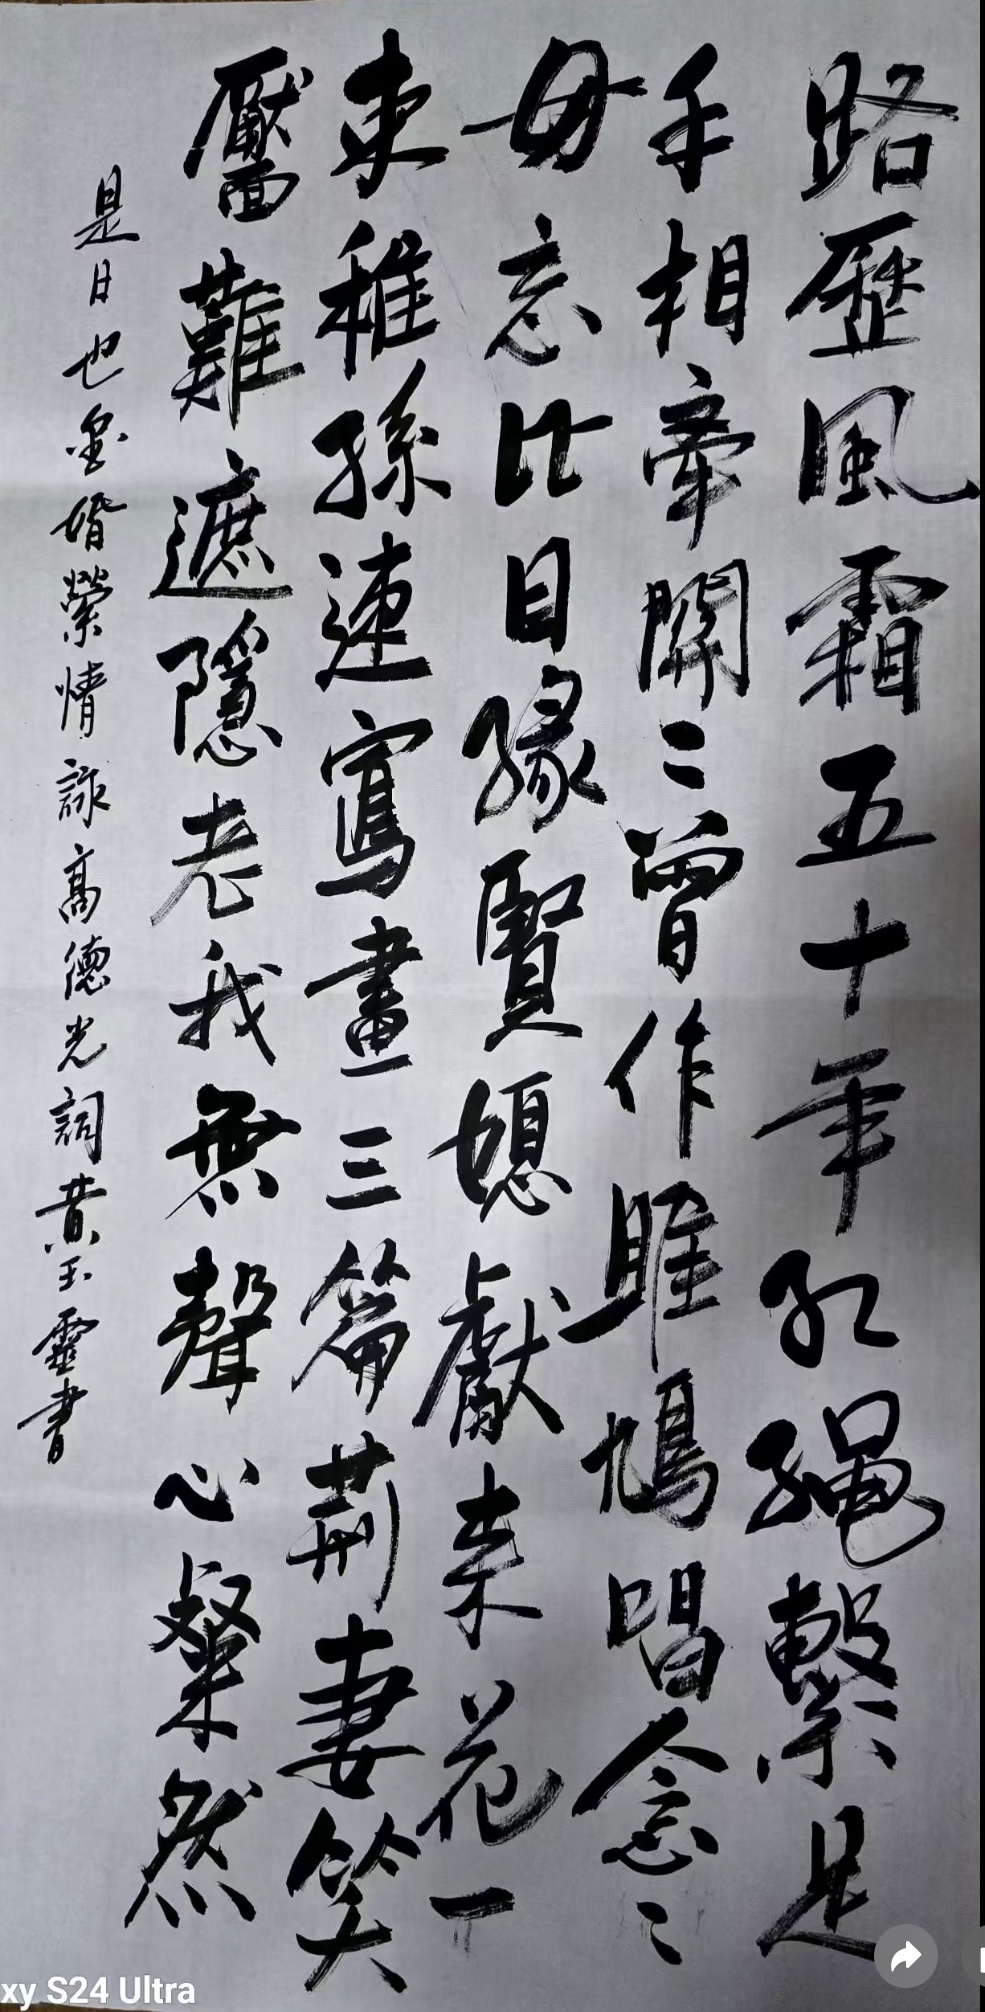 路歷風霜五十年紅繩繫足
手相牽關〻曾作雎鳩唱念〻
毋忘比目緣賢媳獻来花一
束稚孫速寫畫三篇荊妻笑
靨難遮隱老我無聲心粲然
是日也金婚縈情詠高德光詞黄玉靈書
xy S24 Ultra